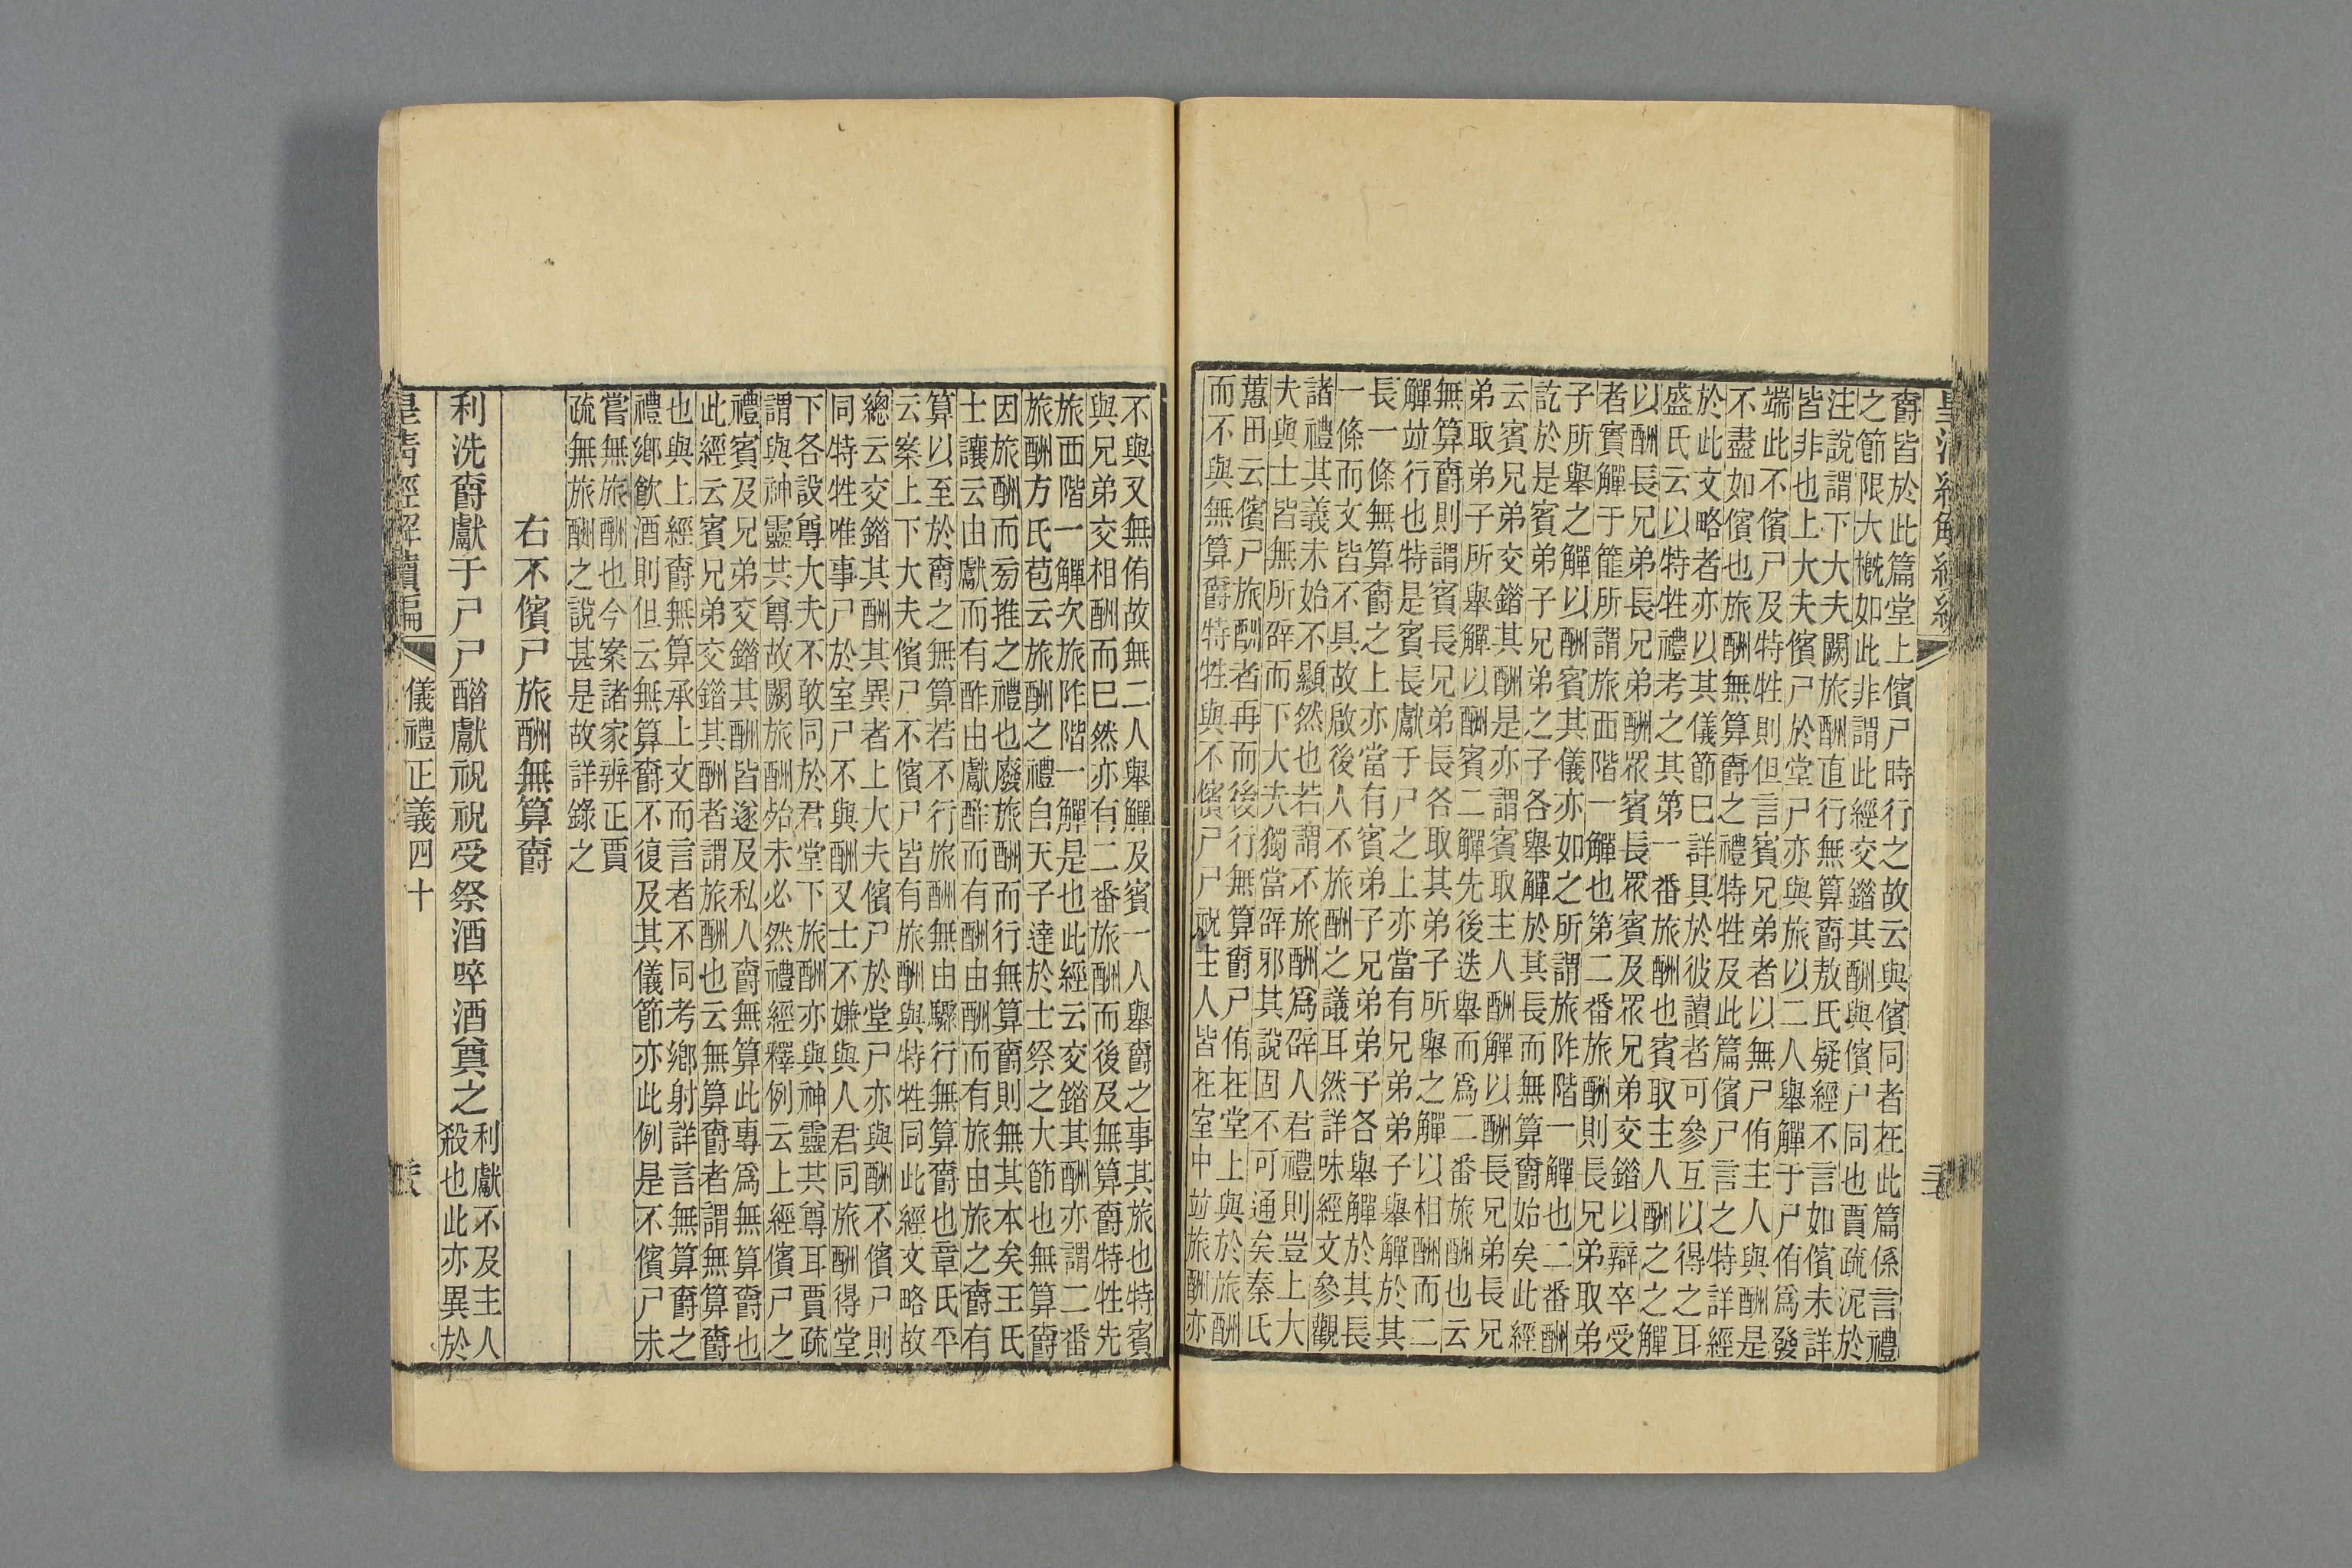 爵皆於此篇堂上儐尸時行之故云與儐同者在此篇係言禮
之節限大槪如此非謂此經交錯其酬與儐尸同也賈疏泥於
注說謂下大夫闕旅酬直行無算爵敖氏疑經不言如儐未詳
皆非也上大夫儐尸於堂尸亦與旅以二人舉觶于尸侑爲發
端此不儐尸及特牲則但言賓兄弟者以無尸侑主人與酬是
不盡如儐也旅酬無算爵之禮特牲及此篇儐尸言之特詳經
於此文略者亦以其儀節巳詳具於彼讀者可參互以得之耳
盛氏云以特牲禮考之其第一番旅酬也賓取主人酬之之觶
以酬長兄弟長兄弟酬眾賓長眾賓及眾兄弟交錯以辯卒受
者實觶于篚所謂旅西階一觶也第二番旅酬則長兄弟取弟
子所舉之觶以酬賓其儀亦如之所謂旅阼階一觶也二番酬
訖於是賓弟子兄弟之子各舉觶於其長而無算爵始矣此經
云賓兄弟交錯其酬是亦謂賓取主人酬觶以酬長兄弟長兄
弟取弟子所舉觶以酬賓二觶先後迭舉而爲二番旅酬也云
無算爵則謂賓長兄弟長各取其弟子所舉之觶以相酬而二
觶竝行也特是賓長獻于尸之上亦當有兄弟弟子舉觶於其
長一條無算爵之上亦當有賓弟子兄弟弟子各舉觶於其長
一條而文皆不具故啟後人不旅酬之議耳然詳味經文參觀
諸禮其義未始不顯然也若謂不旅酬爲辟人君禮則豈上大
夫與士皆無所辟而下大夫獨當辟邪其說固不可通矣秦氏
蕙田云儐尸旅酬者再而後行無算爵尸侑在堂上與於旅酬
而不與無算爵特牲與不儐尸尸祝主人皆在室中竝旅酬亦
不與又無侑故無二人舉觶及賓一人舉爵之事其旅也特賓
與兄弟交相酬而巳然亦有二番旅酬而後及無算爵特牲先
旅西階一觶次旅阼階一觶是也此經云交錯其酬亦謂二番
旅酬方氏苞云旅酬之禮自天子達於士祭之大節也無算爵
因旅酬而㫄推之禮也廢旅酬而行無算爵則無其本矣王氏
士讓云由獻而有酢由獻酢而有酬由酬而有旅由旅之爵有
算以至於爵之無算若不行旅酬無由驟行無算爵也章氏平
云案上下大夫儐尸不儐尸皆有旅酬與特牲同此經文略故
總云交錯其酬其異者上大夫儐尸於堂尸亦與酬不儐尸則
同特牲唯事尸於室尸不與酬又士不嫌與人君同旅酬得堂
下各設尊大夫不敢同於君堂下旅酬亦與神靈共尊耳賈疏
謂與神靈共尊故闕旅酬殆未必然禮經釋例云上經儐尸之
禮賓及兄弟交錯其酬皆遂及私人爵無算此專爲無算爵也
此經云賓兄弟交錯其酬者謂旅酬也云無算爵者謂無算爵
也與上經爵無算承上文而言者不同考鄉射詳言無算爵之
禮鄉飮酒則但云無算爵不復及其儀節亦此例是不儐尸未
嘗無旅酬也今案諸家辨正賈
疏無旅酬之說甚是故詳錄之
右不儐尸旅酬無算爵
利洗爵獻于尸尸酢獻祝祝受祭酒啐酒奠之 利獻不及主人
殺也此亦異於
皇清經解續編 儀禮正義四十